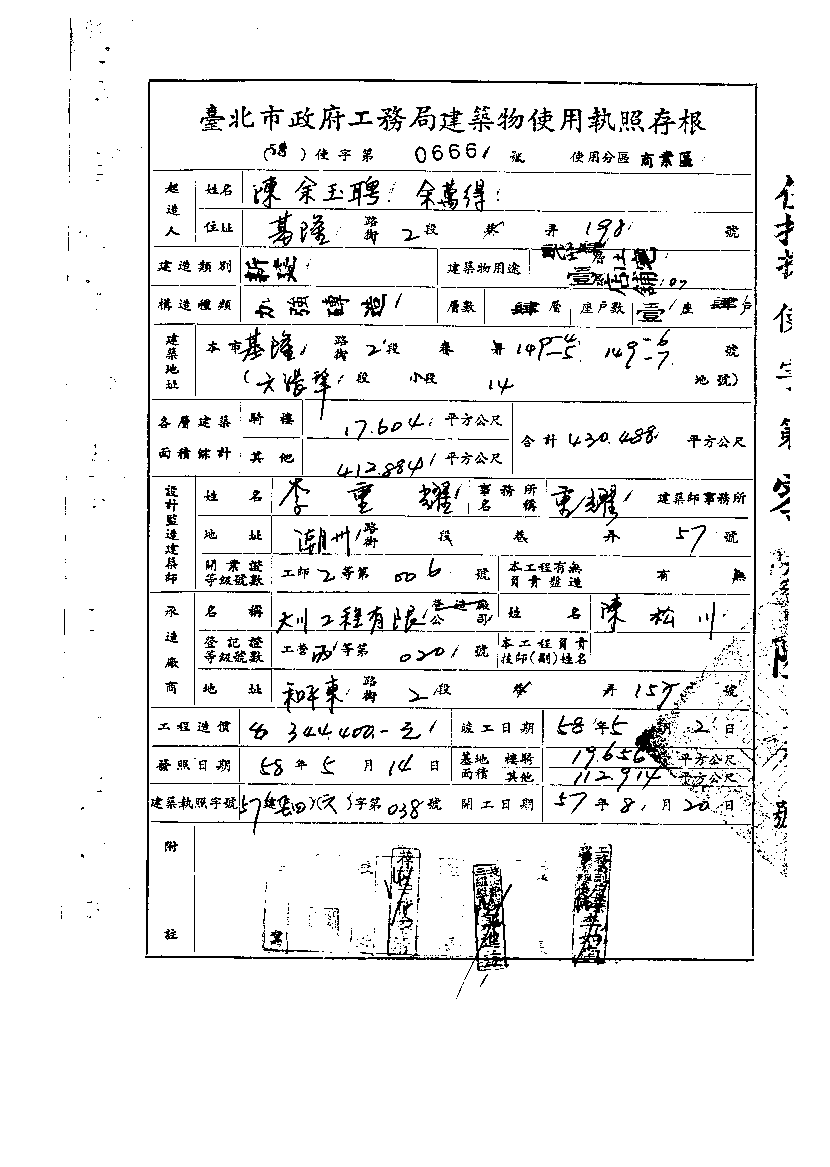 臺北市政府工務局建築物使用執照存根
(58)使字第 0666 號 使用分區 商業區
起造人 姓名 陳余玉聘 余萬得
住址 基隆 路街 2 段 巷 弄 198 號
建造類別 新築 建築物用途 壹層店舖
構造種類 加強磚造 層數 肆層 座戶數 壹座肆戶
建築地址 本市 基隆 路街 2 段 巷 弄 149-4-5 149-6-7 號
( 段 小段 14 地號)
各層建築面積綜計 騎樓 17.604 平方公尺 合計 430.488 平方公尺
其他 412.884 平方公尺
設計監造建築師 姓名 李重耀 事務所名稱 重耀 建築師事務所
地址 潮州 路街 段 巷 弄 57 號
開業證等級號數 工師 2 等第 006 號 本工程有無負責監造 有 無
承造廠商 名稱 大川工程有限 營造廠公司 姓名 陳松川
登記證等級號數 工營 丙 等第 0201 號 本工程負責技師(副)姓名
地址 和平東 路街 2 段 巷 弄 157 號
工程造價 344,400.-元 竣工日期 58年5月2日
發照日期 58年5月14日 基地面積 騎樓 19.656 平方公尺
其他 112.914 平方公尺
建築執照字號 57 字第 038 號 開工日期 57年8月20日
附註
使字第零